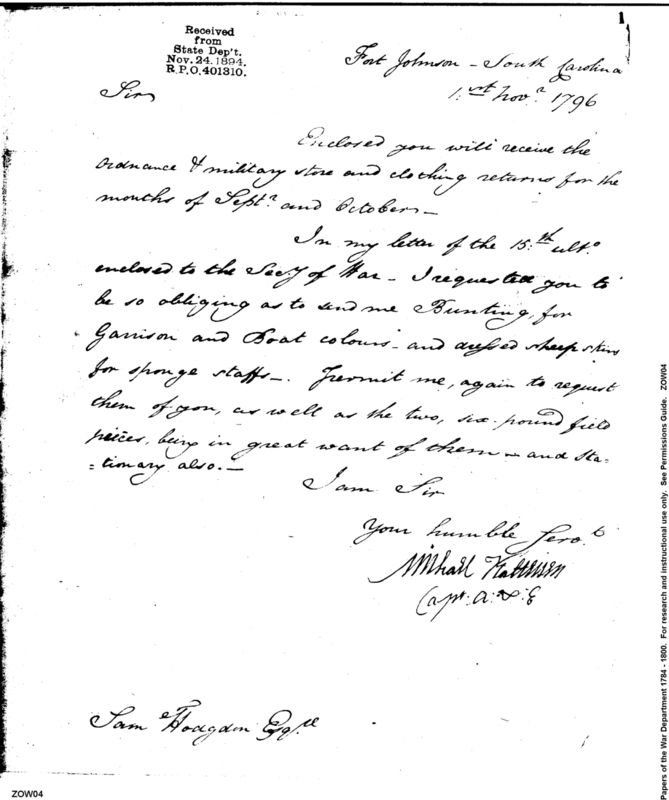 1
Received
from
State Dep't.
Nov. 24. 1894.
R.P.O. 401310.
Fort Johnson – South Carolina
1.rst Nov.r 1796
Sir
Enclosed you will receive the
Ordnance & military store and clothing returns for the
months of Septr and October –
In my letter of the 15.th ulto
enclosed to the Secy of War – I requested you to
be so obliging as to send me Bunting, for
Garrison and Boat colours – and dressed sheep skins
for sponge staffs –. Permit me, again to request
them of you, as well as the two, six pound field
pieces, being in great want of them – and sta=
=tionary also. –
I am Sir
Your humble Servt
Michael Kalteisen
Capt: A: & E
Saml Hodgdon Esqe
ZOW04
Papers of the War Department 1784 - 1800. For research and instructional use only. See Permissions Guide. ZOW04